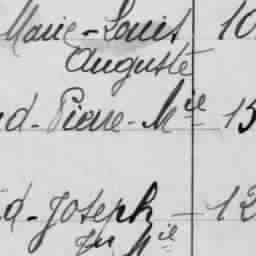 Marie-Louis 10
Auguste
d-Pierre-Mie 15
d-Joseph - 12
frs Mie